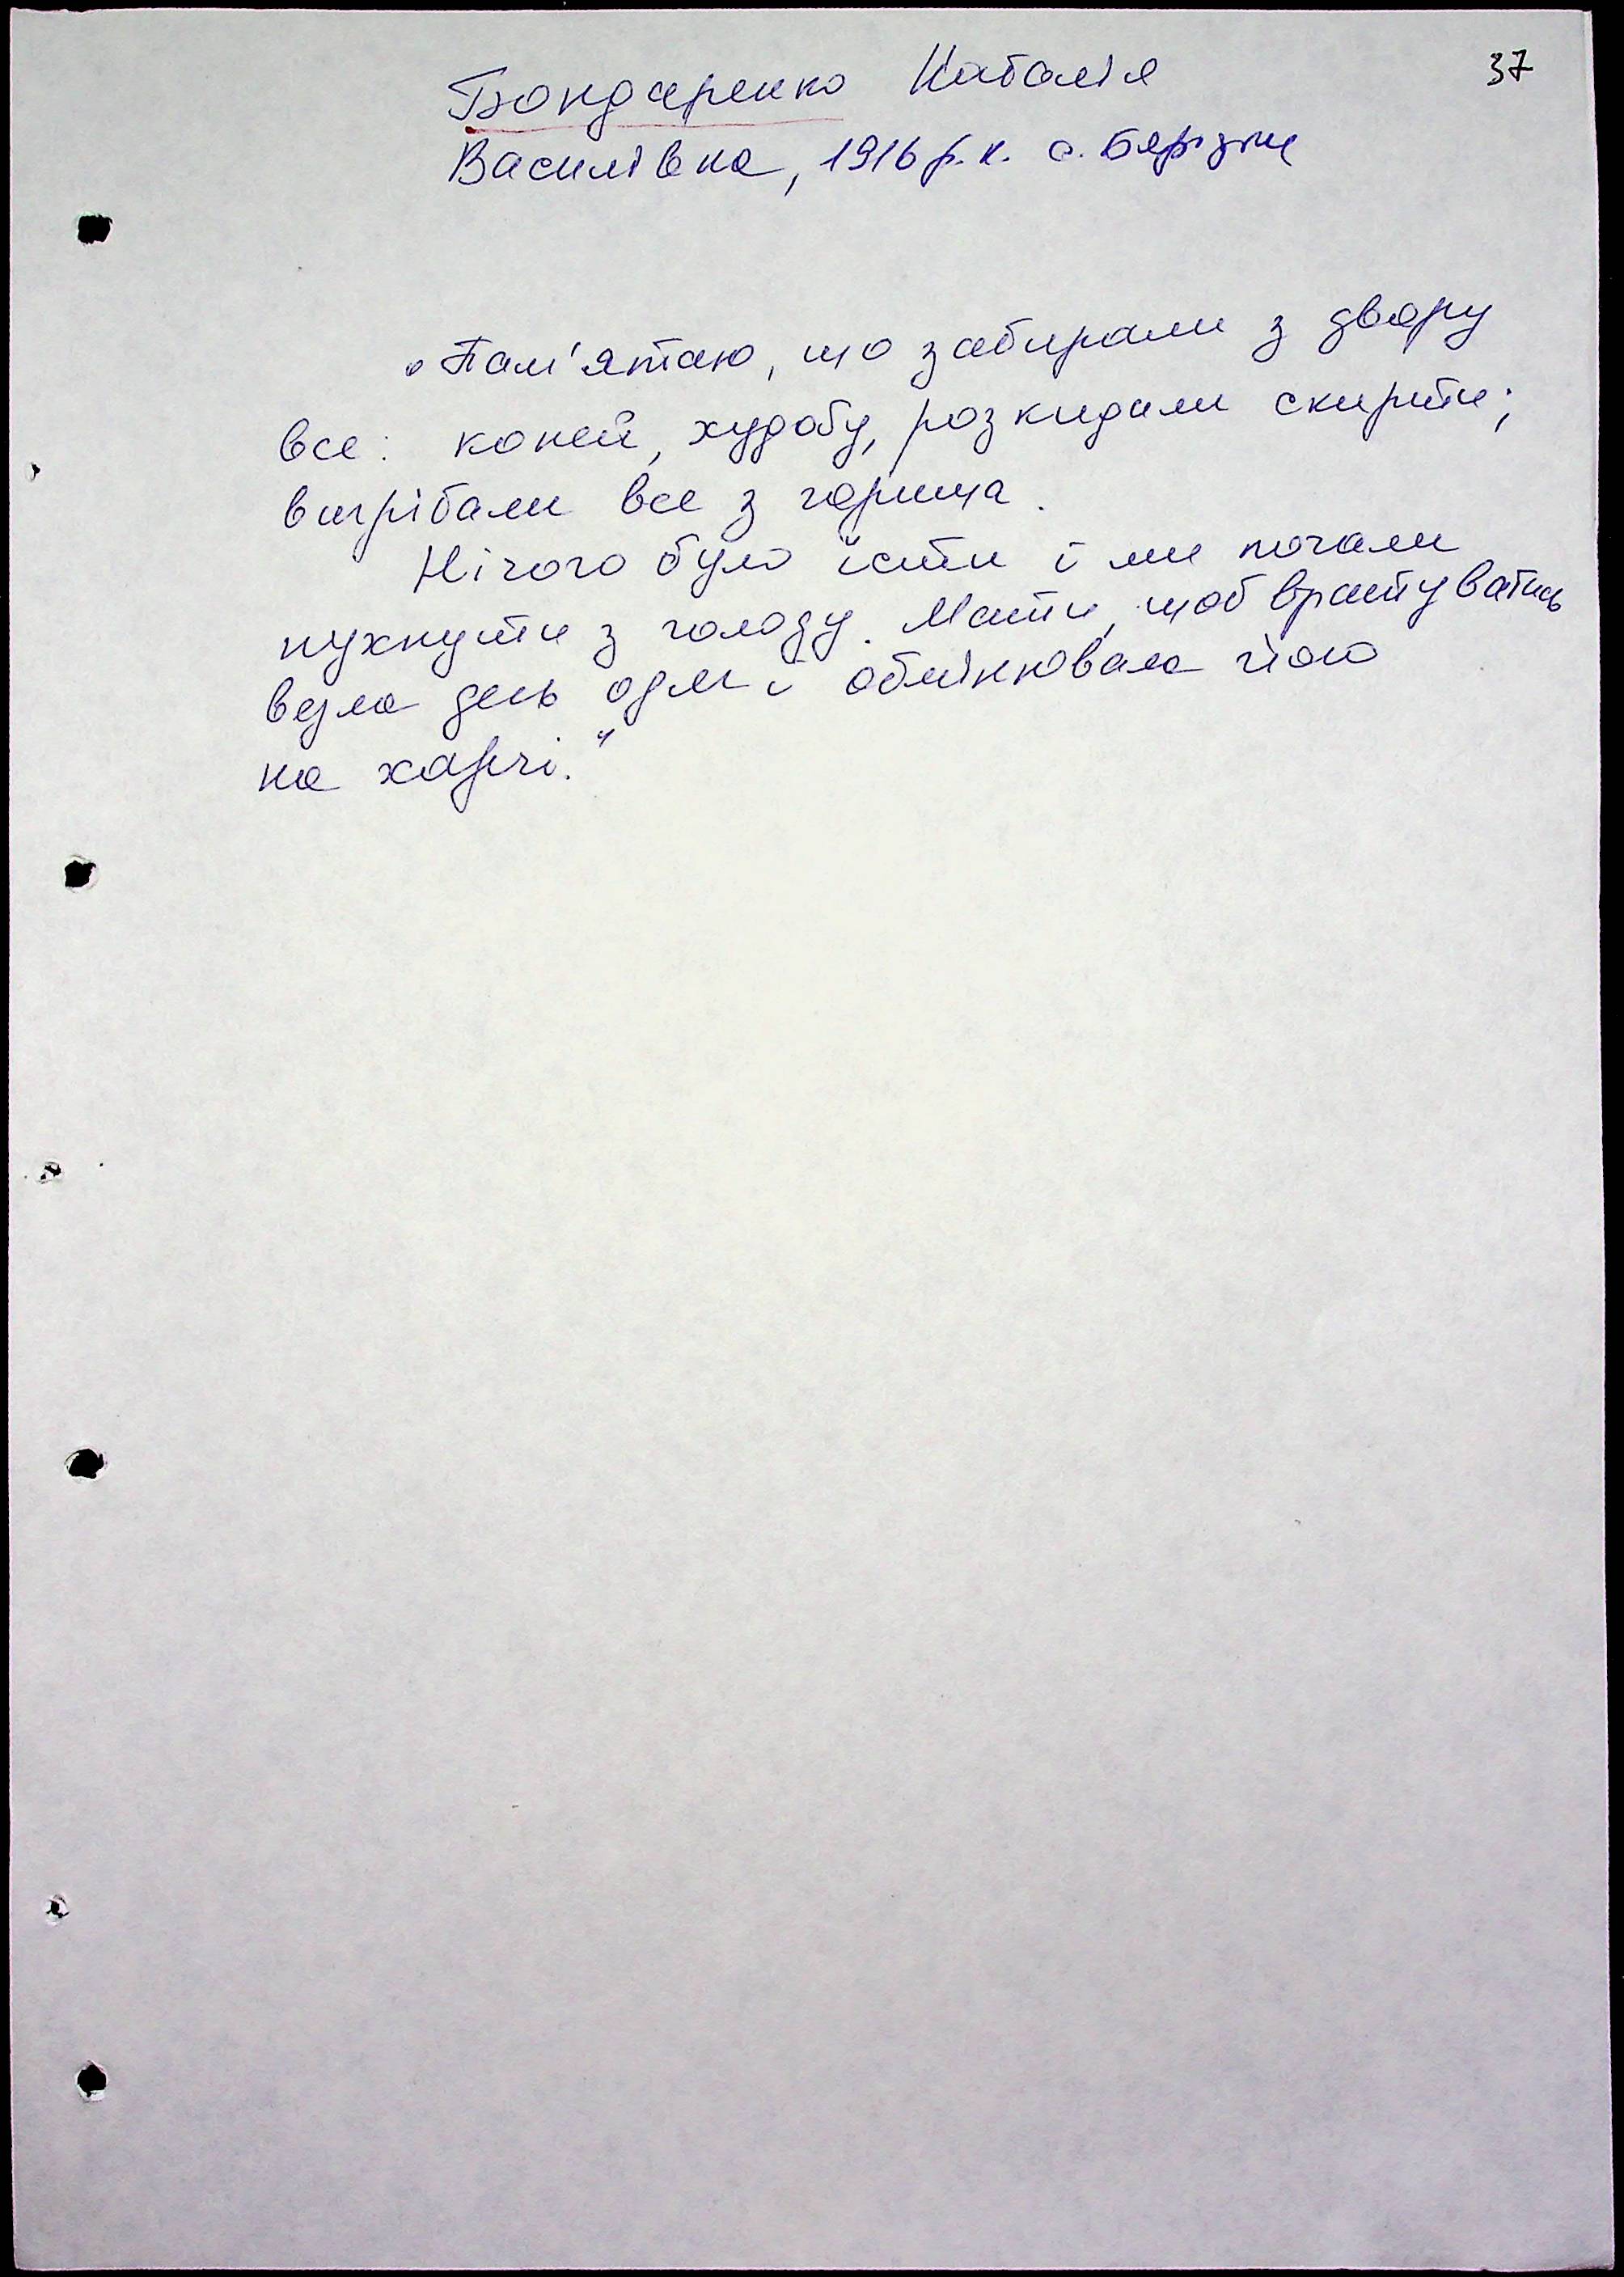 37
Бондаренко Наталія
Василівна, 1916 р.н. с.
„Пам'ятаю, що забирали з двору
все: коней, худобу, розкидали скирти;
вигрібали все з горища.
Нічого було їсти і ми почали
пухнути з голоду. Мати, щоб врятуватись
везла десь одяг і обмінювала його
на харчі."